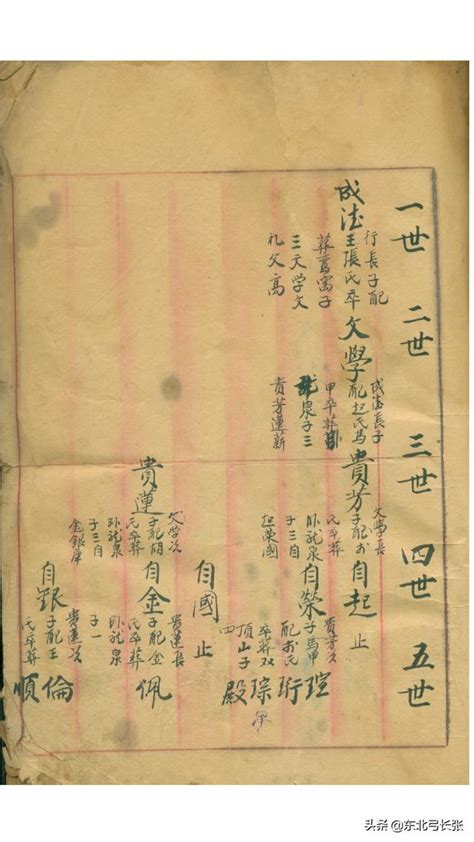 一世
二世
三世
四世
五世
成法
行長子配
王張氏卒
葬
窩子
三文学文
礼文高
文學
成法長子
配赵氏馬
甲卒葬卧
泉子三
貴芳蓮薪
貴芳
文學長
子配
氏卒葬
卧龍泉
子三自
起荣國
自起
止
自榮
貴芳次
子馬甲
配
氏
卒葬双
頂山子
四
瑄珩琮殿
自國
止
貴蓮
文学次
子配胡
氏卒葬
卧龍泉
子三自
金銀庫
自金
貴蓮長
子配金
氏卒葬
卧龍泉
子一
佩
自銀
貴蓮次
子配王
氏卒葬
倫順
头条 @东北弓长张